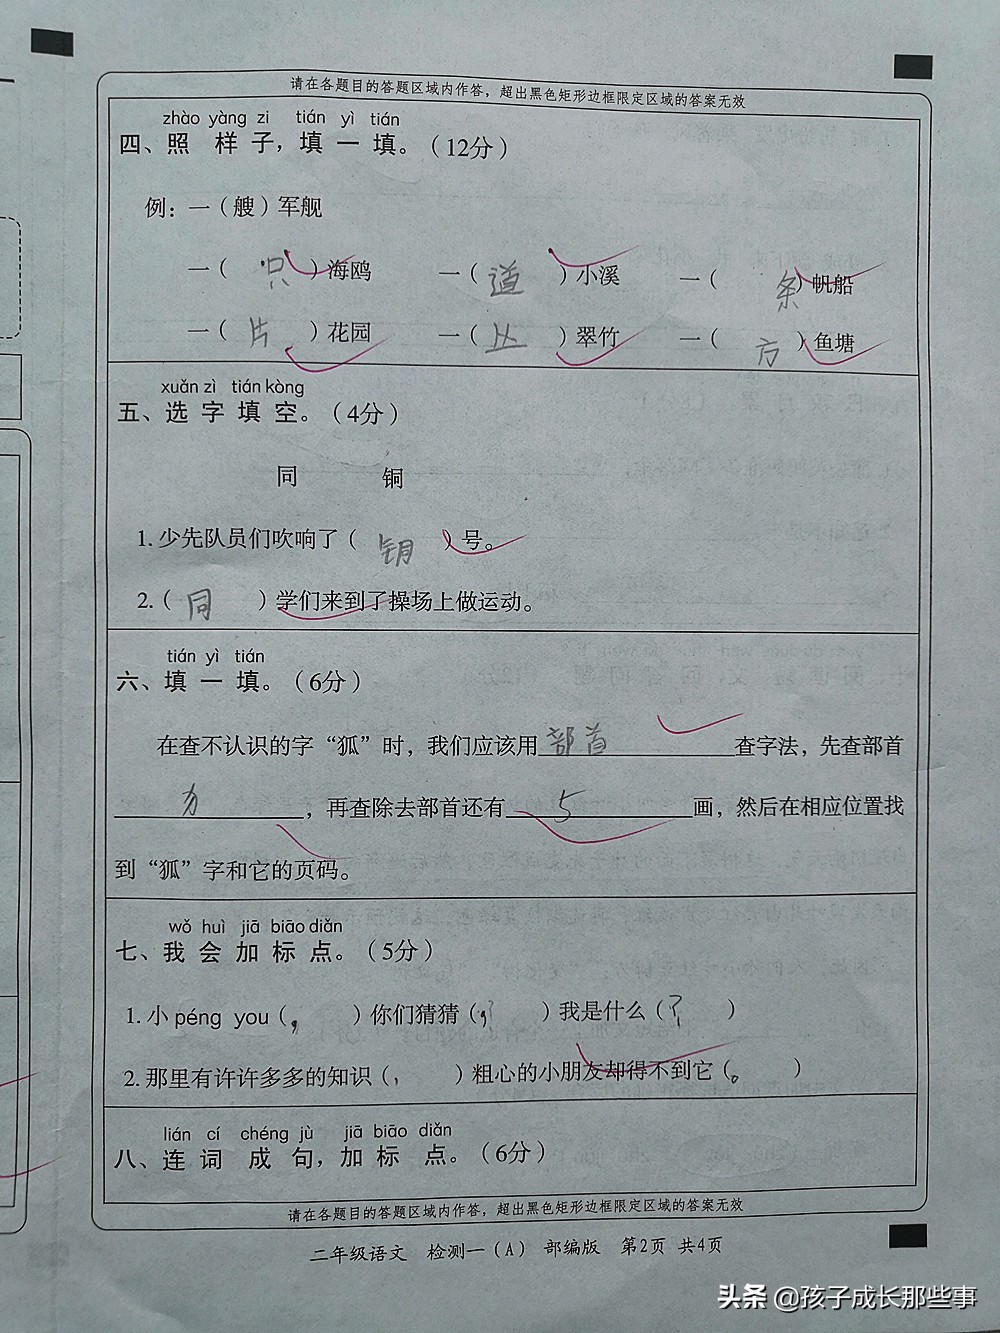 请在各题目的答题区域内作答，超出黑色矩形边框限定区域的答案无效
zhào yàng zi tián yì tián
四、照样子，填一填。（12分）
例：一（艘）军舰
一（只）海鸥 一（道）小溪 一（条）帆船
一（片）花园 一（丛）翠竹 一（方）鱼塘
xuǎn zì tián kòng
五、选字填空。（4分）
同 铜
1. 少先队员们吹响了（钥）号。
2.（同）学们来到了操场上做运动。
tián yì tián
六、填一填。（6分）
在查不认识的字“狐”时，我们应该用部首查字法，先查部首
，再查除去部首还有5画，然后在相应位置找
到“狐”字和它的页码。
wǒ huì jiā biāo diǎn
七、我会加标点。（5分）
1. 小 péng you（，）你们猜猜（，）我是什么（？）
2. 那里有许许多多的知识（，）粗心的小朋友却得不到它（。）
lián cí chéng jù jiā biāo diǎn
八、连词成句，加标点。（6分）
请在各题目的答题区域内作答，超出黑色矩形边框限定区域的答案无效
二年级语文 检测一（A） 部编版 第2页 共4页
头条 @孩子成长那些事